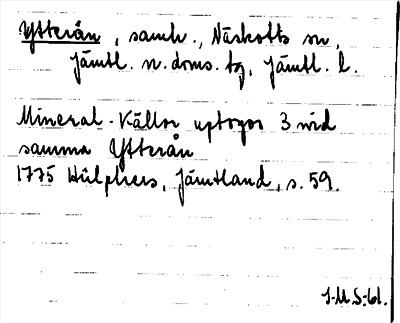 Ytterån, samh., Näskotts sn,
Jämtl. n. doms. tg, Jämtl. l.
Mineral-Källor uptogos 3 wid
samma Ytterån
1775 Hülphers, Jämtland, s. 59.
J-M.S-61.